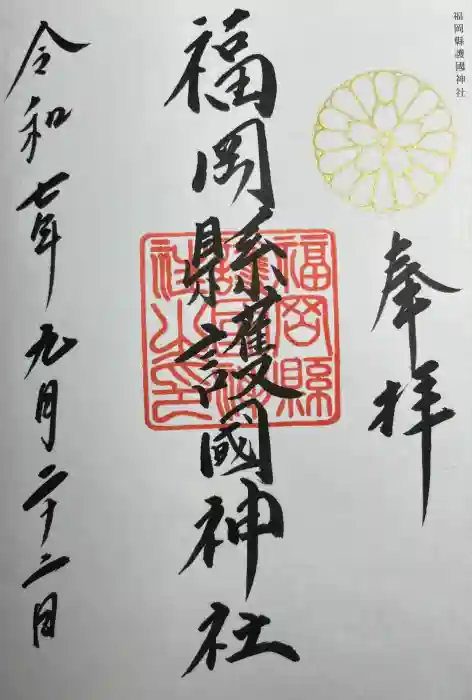 福岡縣護國神社
奉拝
福岡縣護國神社
福岡縣護國神社之印
令和七年九月二十二日